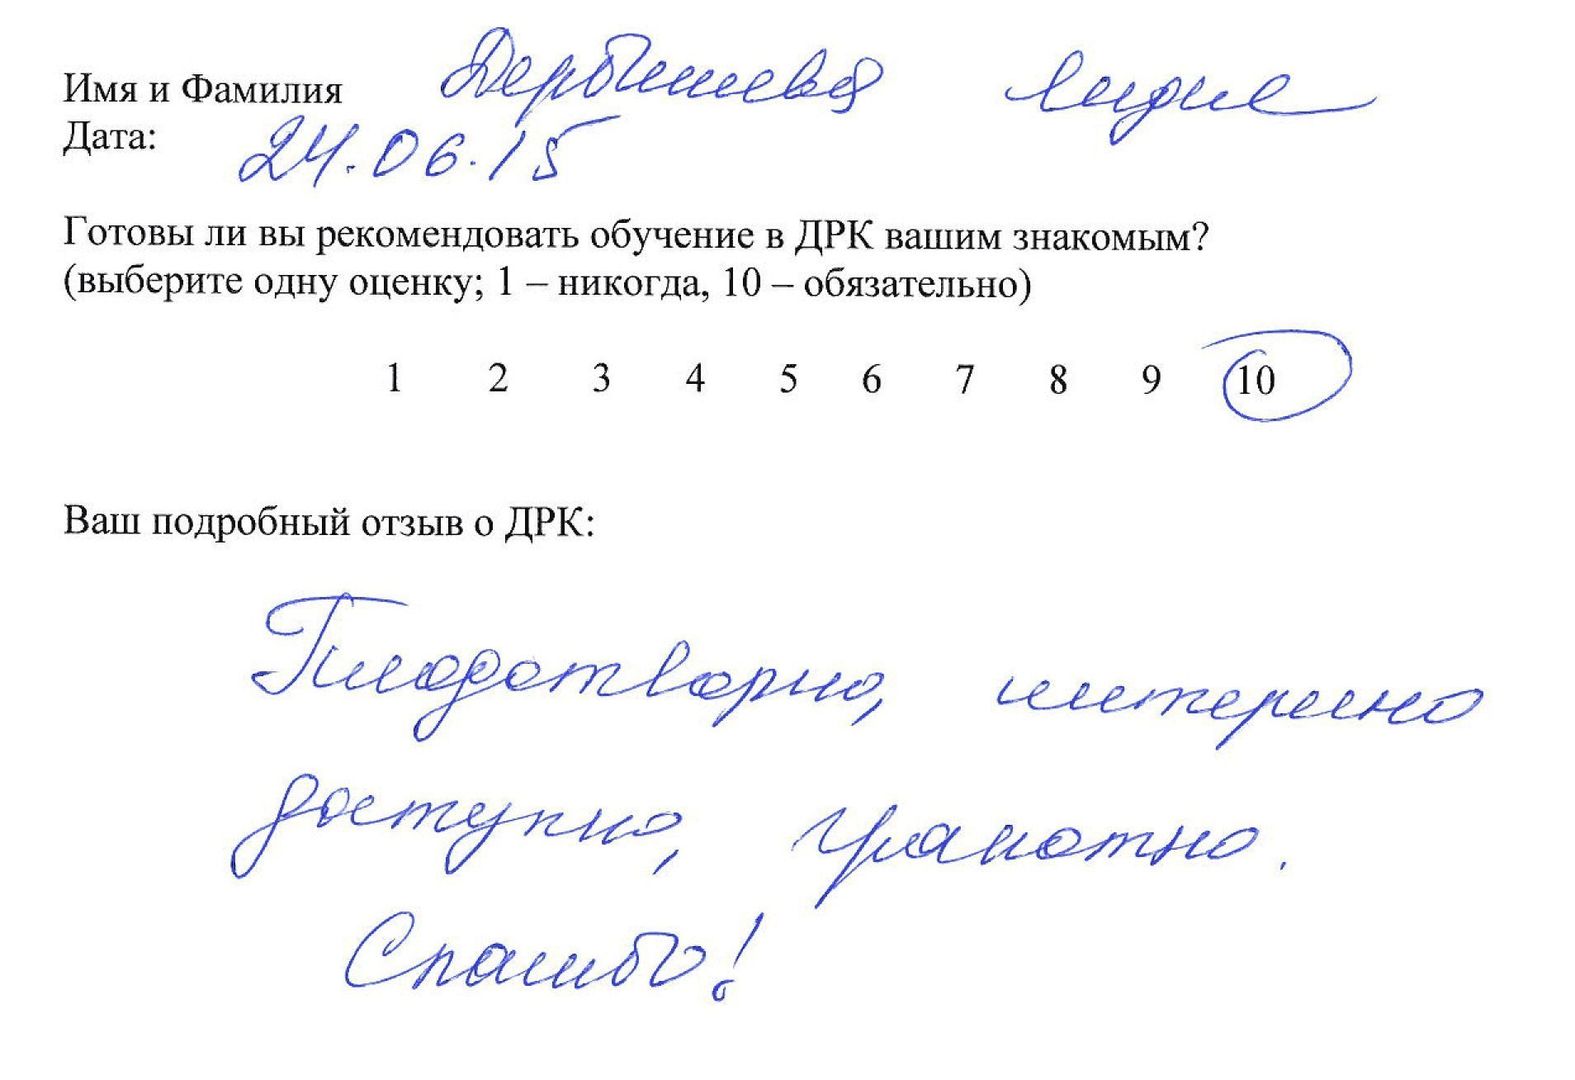 Имя и Фамилия Дербышева Лидия
Дата: 24.06.15
Готовы ли вы рекомендовать обучение в ДРК вашим знакомым?
(выберите одну оценку; 1 – никогда, 10 – обязательно)
1 2 3 4 5 6 7 8 9 10
Ваш подробный отзыв о ДРК:
Плодотворно, интересно
доступно, грамотно.
Спасибо!